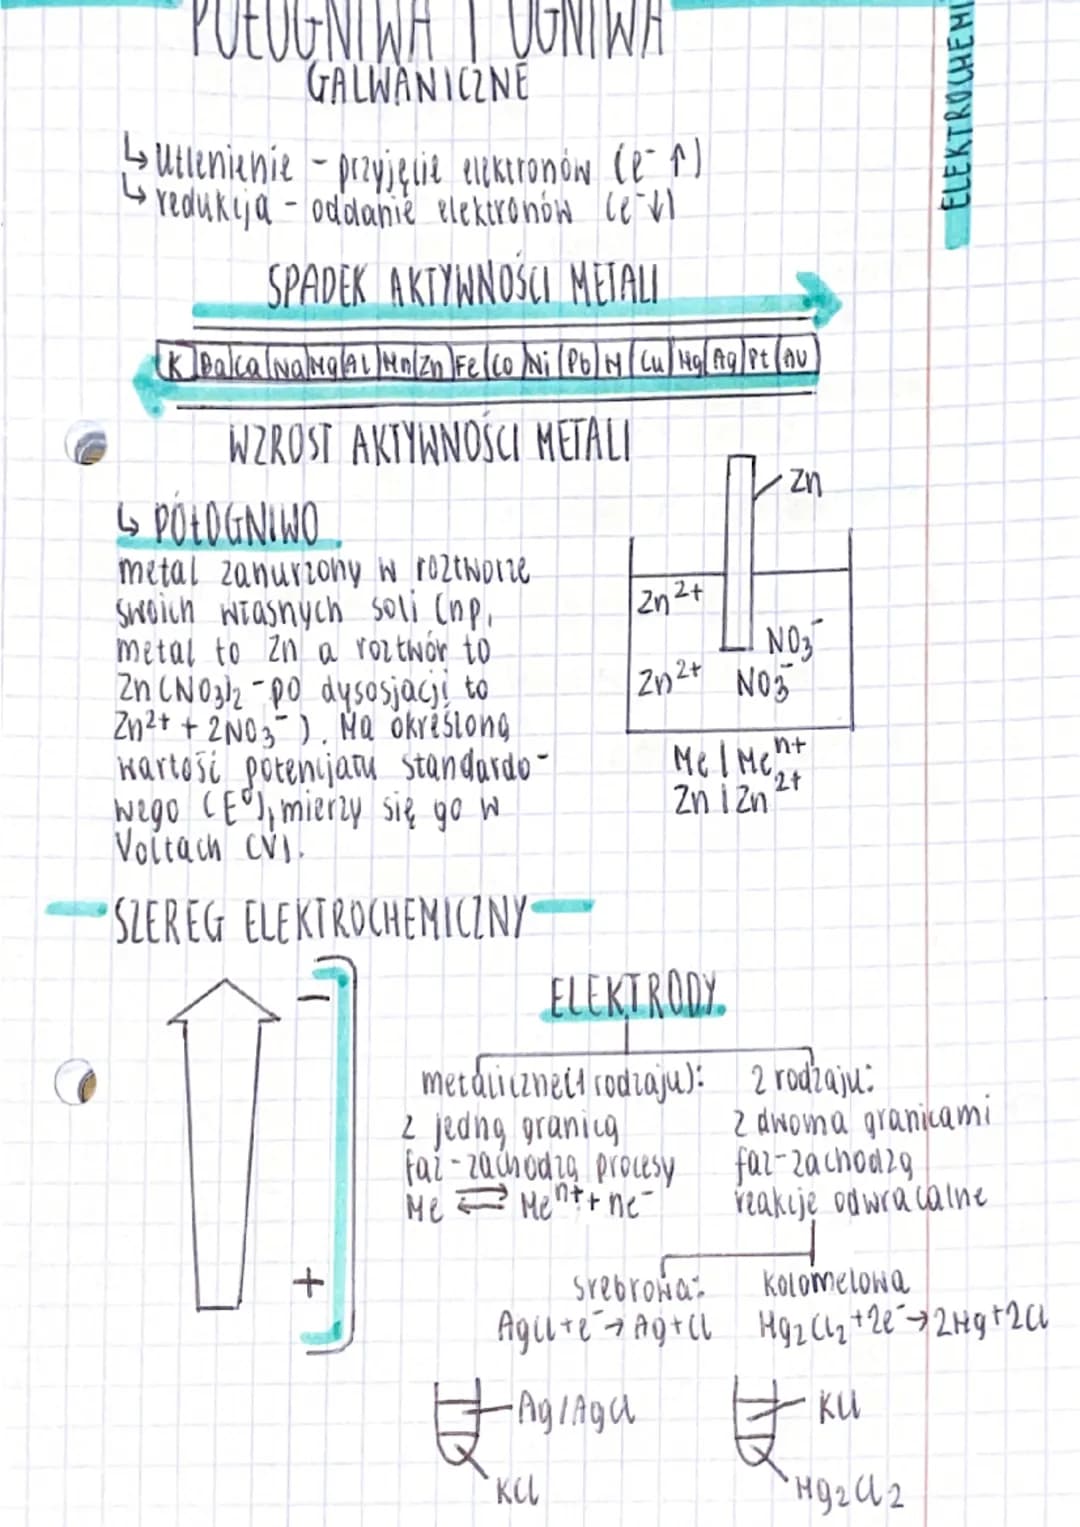 PÓŁOGNIWA I OGNIWA
GALWANICZNE
ELEKTROCHEMI
↳ utlenienie - przyjęcie elektronów (e⁻ ↑)
↳ redukcja - oddanie elektronów (e⁻↓)
SPADEK AKTYWNOŚCI METALI
K | Ba | Ca | Na | Mg | Al | Mn | Zn | Fe | Co | Ni | Pb | H | Cu | Hg | Ag | Pt | Au
WZROST AKTYWNOŚCI METALI
↳ PÓŁOGNIWO
metal zanurzony w roztworze
swoich własnych soli (np.
metal to Zn a roztwór to
Zn(NO₃)₂ - po dysosjacji to
Zn²⁺ + 2NO₃⁻). Ma określoną
wartość potencjału standardo-
wego (E⁰), mierzy się go w
Voltach (V).
Zn
Zn²⁺
NO₃⁻
Zn²⁺ NO₃⁻
Me | Meⁿ⁺
Zn | Zn²⁺
SZEREG ELEKTROCHEMICZNY
−
+
ELEKTRODY
metaliczne(1 rodzaju):
z jedną granicą
faz - zachodzą procesy
Me ⇌ Meⁿ⁺ + ne⁻
2 rodzaju:
z dwoma granicami
faz - zachodzą
reakcje odwracalne
srebrowa:
AgCl + e⁻ → Ag + Cl
kolomelowa
Hg₂Cl₂ + 2e⁻ → 2Hg + 2Cl
Ag/AgCl
KCl
KCl
Hg₂Cl₂